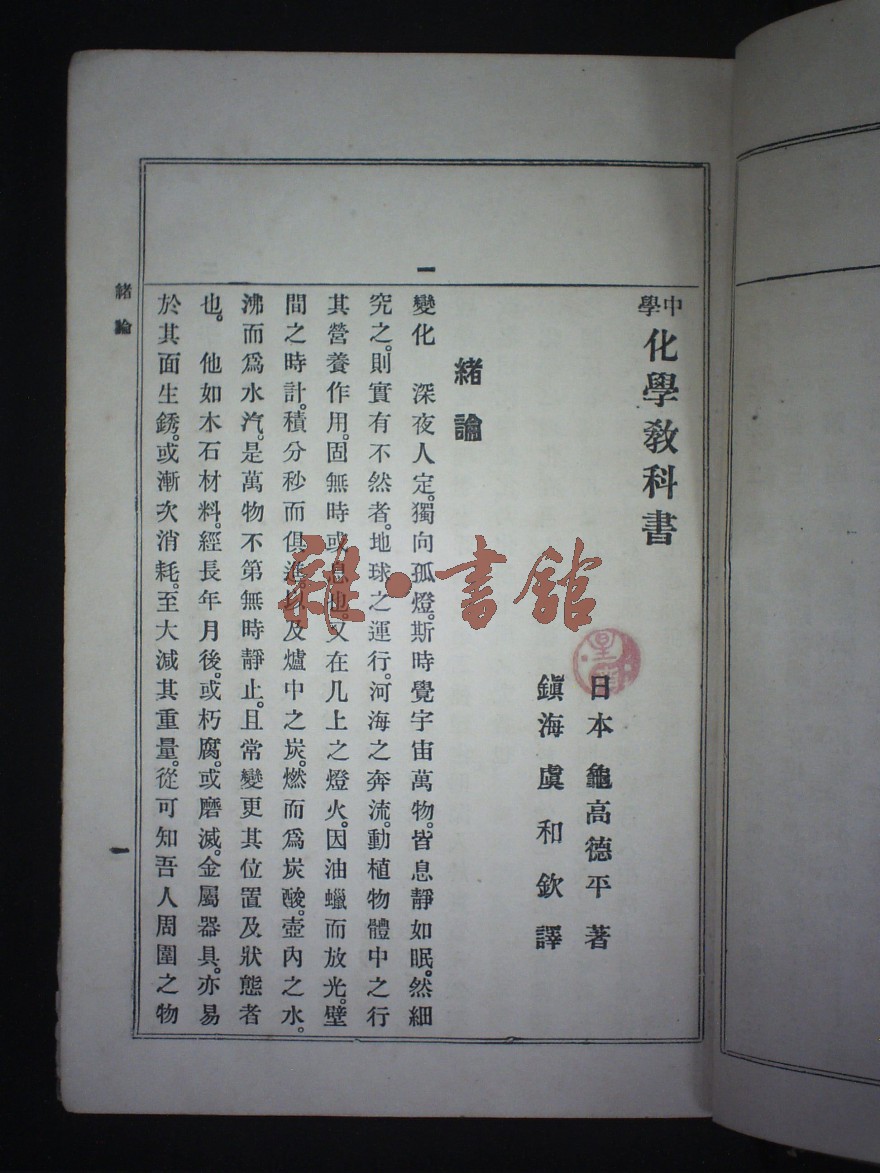 中學 化學教科書
日本 龜高德平 著
鎭海 虞和欽 譯
緒論
一
變化　深夜人定。獨向孤燈。斯時覺宇宙萬物。皆息靜如眠。然細
究之。則實有不然者。地球之運行。河海之奔流。動植物體中之行
其營養作用。固無時或息也。又在几上之燈火。因油蠟而放光。壁
間之時計。積分秒而俱進。以及爐中之炭。燃而爲炭酸。壺內之水。
沸而爲水汽。是萬物不第無時靜止。且常變更其位置及狀態者
也。　他如木石材料。經長年月後。或朽腐。或磨滅。金屬器具。亦易
於其面生銹。或漸次消耗。至大減其重量。從可知吾人周圍之物
緒論
一
雜·書館